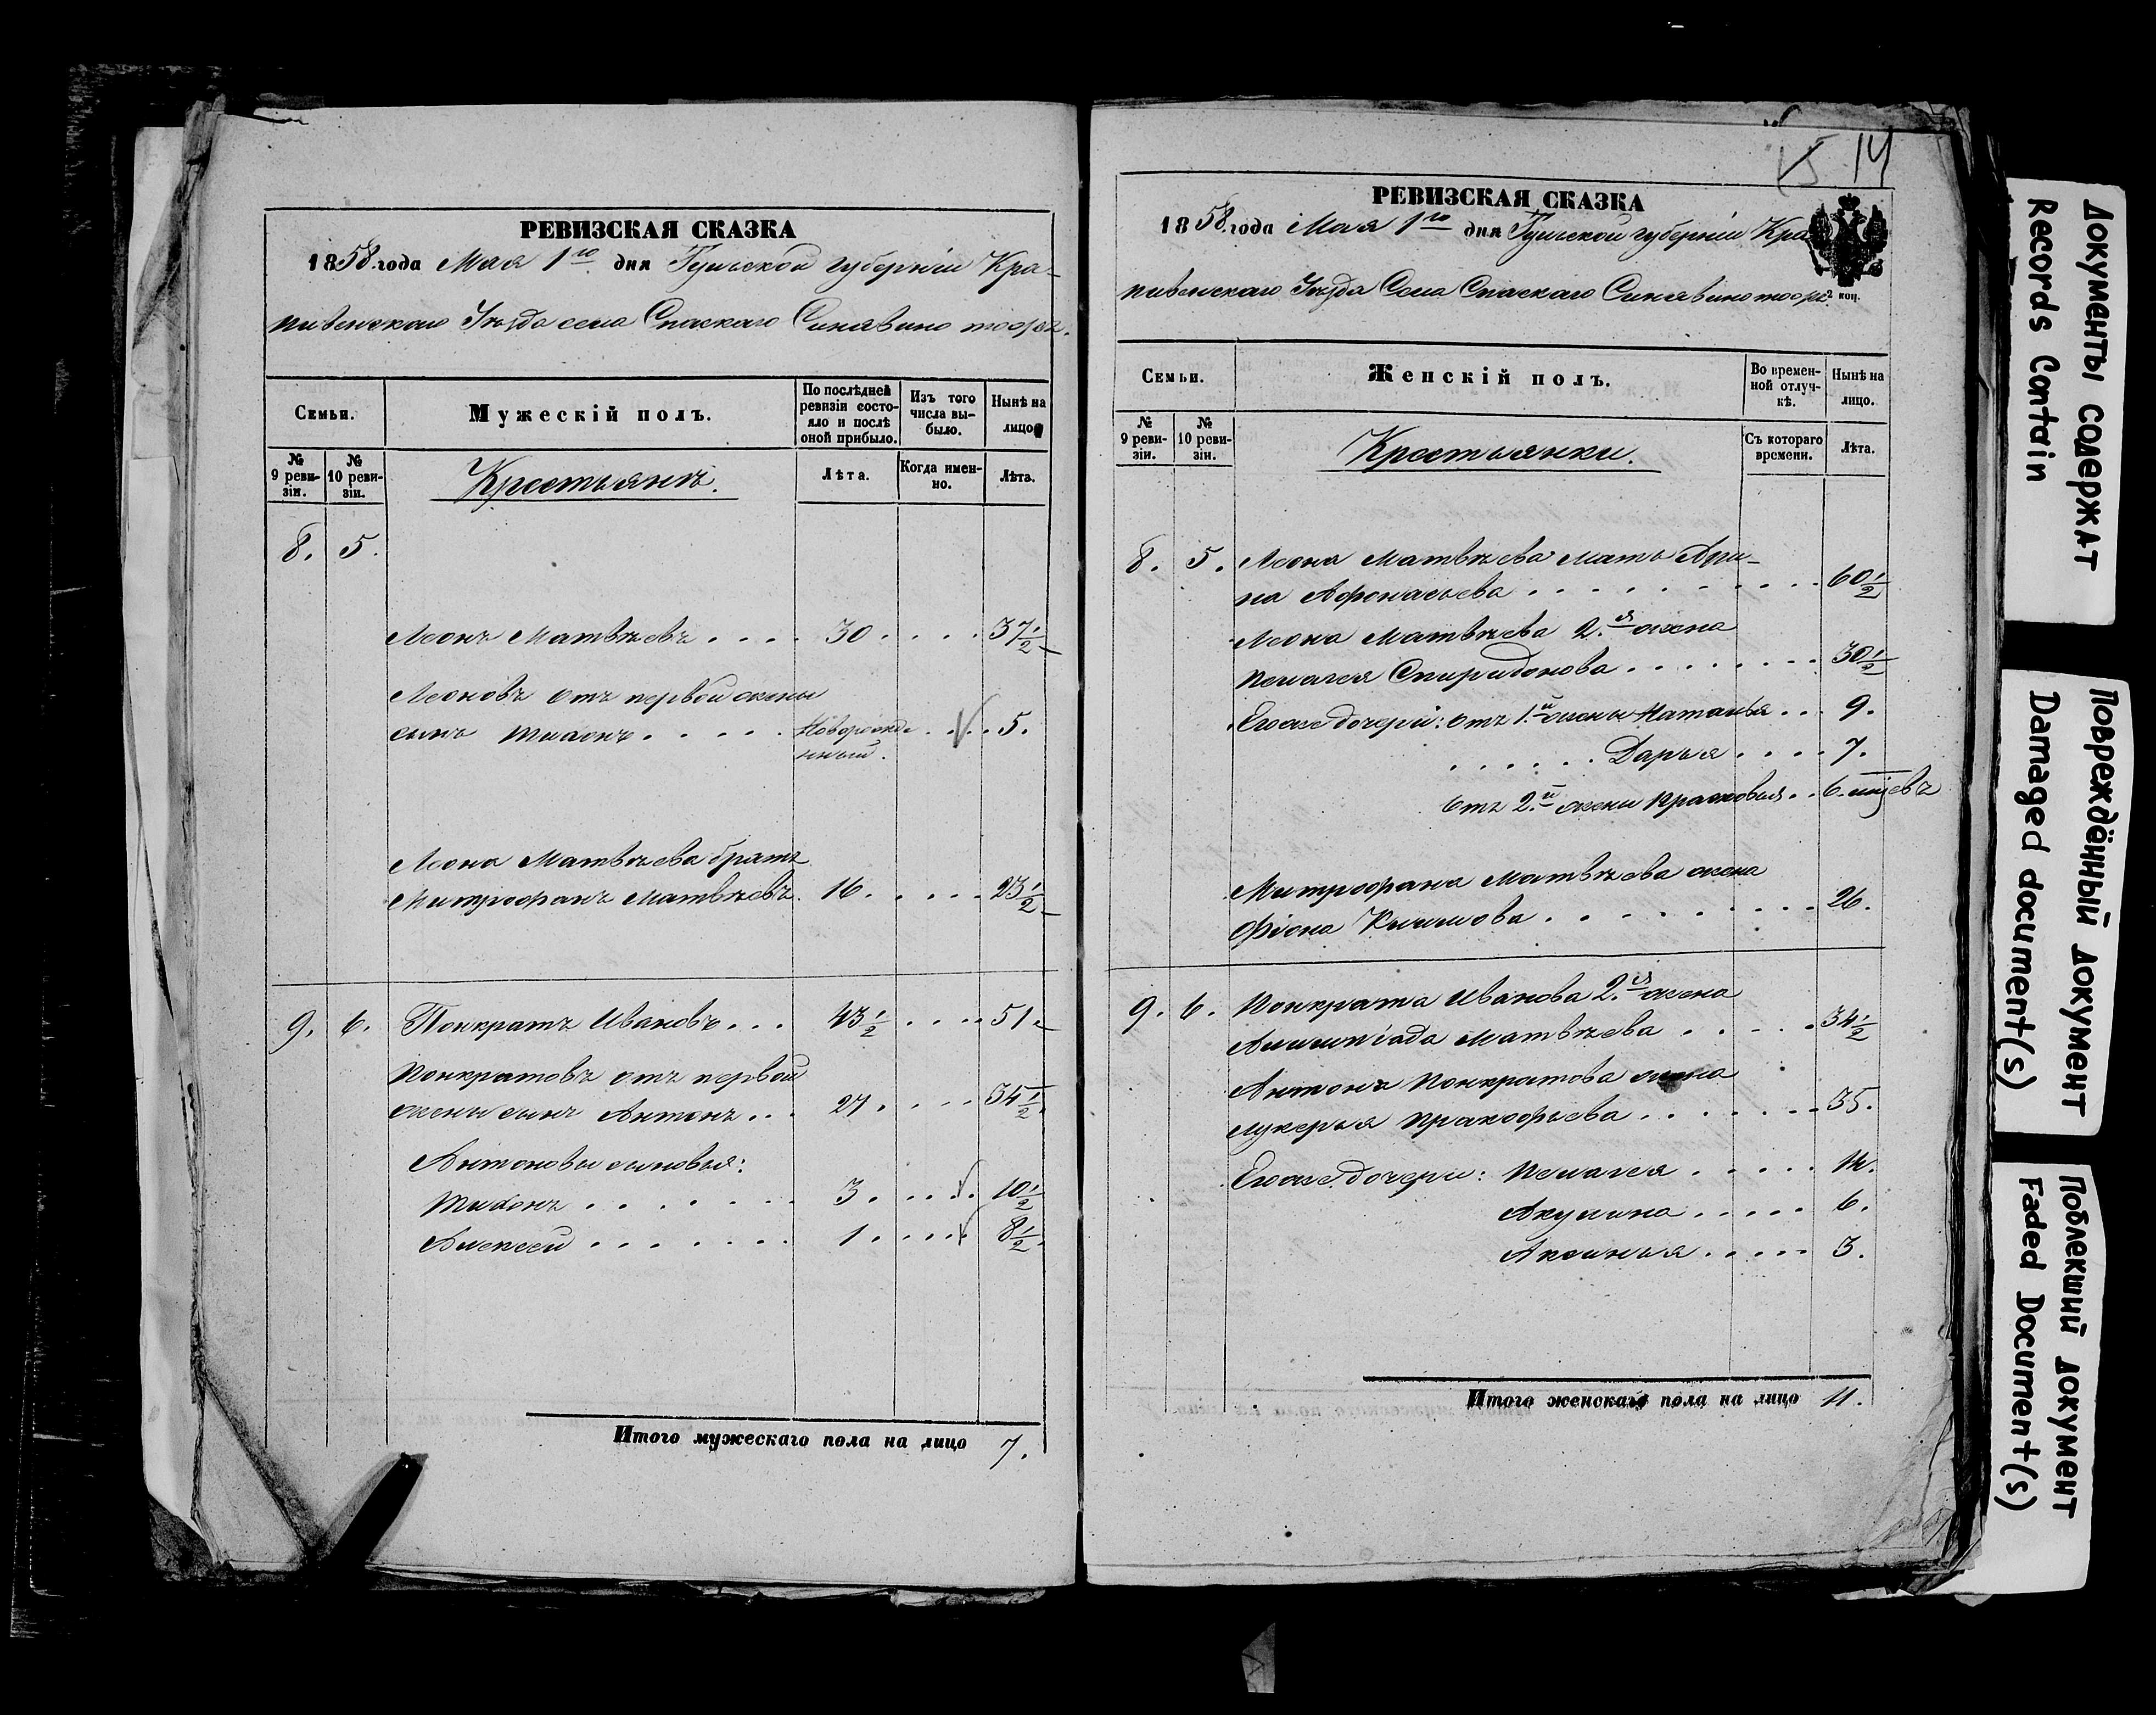 РЕВИЗСКАЯ СКАЗКА
1858 года Мая 1го дня Тульской губерніи Кра-
пивенскаго Уѣзда села Спаскаго Синявино тоожъ.
Семьи.
Мужескій полъ.
По послѣдней ревизіи состояло и послѣ оной прибыло.
Изъ того числа выбыло.
Нынѣ на лицо
№ 9 ревизіи.
№ 10 ревизіи.
Крестьянъ.
Лѣта.
Когда именно.
Лѣта.
8. 5.
Леонъ Матвѣевъ . . . . 30 . . . . 37½
Леоновъ отъ первой жены
сынъ Тихонъ . . . . . Новорожденный. . . . 5.
Леона Матвѣева братъ
Митрофанъ Матвѣевъ. 16 . . . . . 23½
9. 6. Понкратъ Ивановъ . . . 43½ . . . . 51.
Понкратовъ отъ первой
жены сынъ Антонъ . . . 27 . . . . 34½.
Антоновы сыновья:
Тихонъ . . . . . . . 3 . . . . 10½
Алексей . . . . . . . 1 . . . . 8½.
Итого мужескаго пола на лицо 7.
15 14
РЕВИЗСКАЯ СКАЗКА
1858 года Мая 1го дня Тульской губерніи Кра
пивенскаго Уѣзда Села Спаскаго Синявино тоожъ
2 коп.
Семьи.
Женскій полъ.
Во временной отлучкѣ.
Нынѣ на лицо.
№ 9 ревизіи.
№ 10 ревизіи.
Крестьянки.
Съ котораго времени.
Лѣта.
8. 5. Леона Матвѣева мать Ари-
на Афонасьева . . . . . . . . . 60½
Леона Матвѣева 2.я жена
Пелагея Спиридонова . . . . . . . . 30½
Егоже дочери: отъ 1.й жены Наталья . . . 9.
. . . . . . Дарья . . . . 7.
отъ 2.й жены Прасковья . . 6. мцевъ
Митрофана Матвѣева жена
Фіона Климова . . . . . . . . . 26.
9. 6. Понкрата Иванова 2.я жена
Алимпіада Матвѣева . . . . . 34½
Антона Понкратова жена
Лукерья Пракофьева . . . . . . . 35.
Егоже дочери: Пелагея . . . . . 14.
Акулина . . . . . 6.
Аксинья . . . . . 3.
Итого женскаго пола на лицо 11.
Документы содержат
Records Contain
Повреждённый документ
Damaged document(s)
Поблекший документ
Faded Document(s)